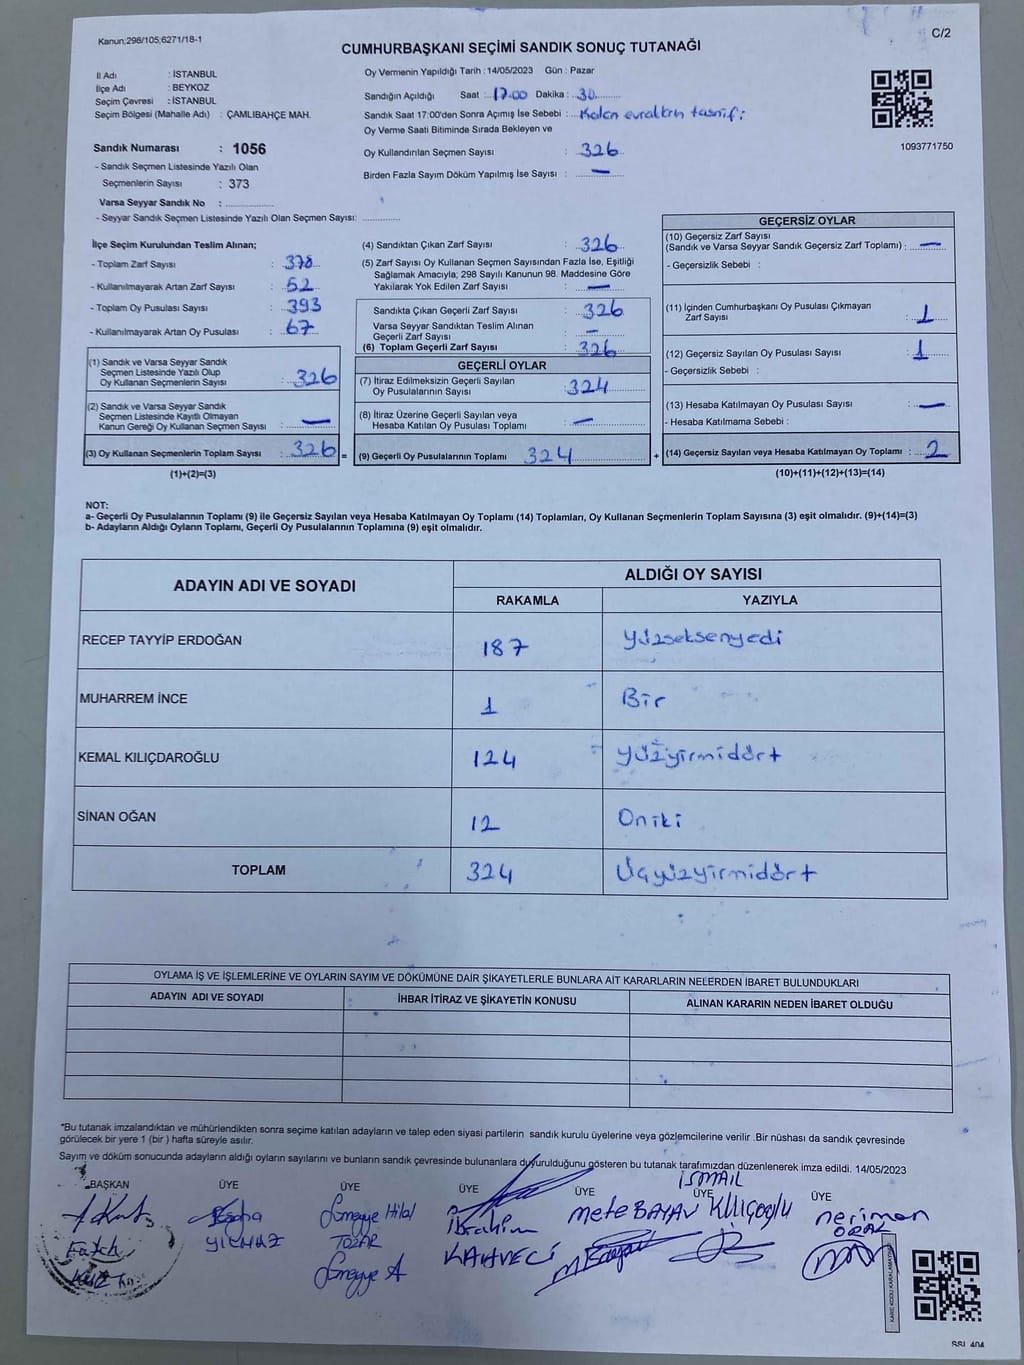 Kanun;298/105;6271/18-1
C/2
CUMHURBAŞKANI SEÇİMİ SANDIK SONUÇ TUTANAĞI
İl Adı : İSTANBUL
İlçe Adı : BEYKOZ
Seçim Çevresi : İSTANBUL
Seçim Bölgesi (Mahalle Adı) : ÇAMLIBAHÇE MAH.
Sandık Numarası : 1056
- Sandık Seçmen Listesinde Yazılı Olan
Seçmenlerin Sayısı : 373
Varsa Seyyar Sandık No :
- Seyyar Sandık Seçmen Listesinde Yazılı Olan Seçmen Sayısı:
Oy Vermenin Yapıldığı Tarih : 14/05/2023 Gün : Pazar
Sandığın Açıldığı Saat : 17.00 Dakika : 30
Sandık Saat 17:00'den Sonra Açımış İse Sebebi : Kalan evrakların tasnifi
Oy Verme Saati Bitiminde Sırada Bekleyen ve
Oy Kullandırılan Seçmen Sayısı : 326
Birden Fazla Sayım Döküm Yapılmış İse Sayısı : —
1093771750
İlçe Seçim Kurulundan Teslim Alınan;
- Toplam Zarf Sayısı : 378
- Kullanılmayarak Artan Zarf Sayısı : 52
- Toplam Oy Pusulası Sayısı : 393
- Kullanılmayarak Artan Oy Pusulası : 67
(1) Sandık ve Varsa Seyyar Sandık
Seçmen Listesinde Yazılı Olup
Oy Kullanan Seçmenlerin Sayısı : 326
(2) Sandık ve Varsa Seyyar Sandık
Seçmen Listesinde Kayıtlı Olmayan
Kanun Gereği Oy Kullanan Seçmen Sayısı : —
(3) Oy Kullanan Seçmenlerin Toplam Sayısı : 326 =
(1)+(2)=(3)
(4) Sandıktan Çıkan Zarf Sayısı : 326
(5) Zarf Sayısı Oy Kullanan Seçmen Sayısından Fazla İse, Eşitliği
Sağlamak Amacıyla; 298 Sayılı Kanunun 98. Maddesine Göre
Yakılarak Yok Edilen Zarf Sayısı : —
Sandıkta Çıkan Geçerli Zarf Sayısı : 326
Varsa Seyyar Sandıktan Teslim Alınan
Geçerli Zarf Sayısı : —
(6) Toplam Geçerli Zarf Sayısı : 326
GEÇERLİ OYLAR
(7) İtiraz Edilmeksizin Geçerli Sayılan
Oy Pusulalarının Sayısı : 324
(8) İtiraz Üzerine Geçerli Sayılan veya
Hesaba Katılan Oy Pusulası Toplamı : —
(9) Geçerli Oy Pusulalarının Toplamı 324 +
GEÇERSİZ OYLAR
(10) Geçersiz Zarf Sayısı
(Sandık ve Varsa Seyyar Sandık Geçersiz Zarf Toplamı) : —
- Geçersizlik Sebebi :
(11) İçinden Cumhurbaşkanı Oy Pusulası Çıkmayan
Zarf Sayısı : 1
(12) Geçersiz Sayılan Oy Pusulası Sayısı : 1
- Geçersizlik Sebebi :
(13) Hesaba Katılmayan Oy Pusulası Sayısı : —
- Hesaba Katılmama Sebebi :
(14) Geçersiz Sayılan veya Hesaba Katılmayan Oy Toplamı : 2
(10)+(11)+(12)+(13)=(14)
NOT:
a- Geçerli Oy Pusulalarının Toplamı (9) ile Geçersiz Sayılan veya Hesaba Katılmayan Oy Toplamı (14) Toplamları, Oy Kullanan Seçmenlerin Toplam Sayısına (3) eşit olmalıdır. (9)+(14)=(3)
b- Adayların Aldığı Oyların Toplamı, Geçerli Oy Pusulalarının Toplamına (9) eşit olmalıdır.
ADAYIN ADI VE SOYADI
ALDIĞI OY SAYISI
RAKAMLA YAZIYLA
RECEP TAYYİP ERDOĞAN 187 Yüzseksenyedi
MUHARREM İNCE 1 Bir
KEMAL KILIÇDAROĞLU 124 Yüzyirmidört
SİNAN OĞAN 12 Oniki
TOPLAM 324 Üçyüzyirmidört
OYLAMA İŞ VE İŞLEMLERİNE VE OYLARIN SAYIM VE DÖKÜMÜNE DAİR ŞİKAYETLERLE BUNLARA AİT KARARLARIN NELERDEN İBARET BULUNDUKLARI
ADAYIN ADI VE SOYADI İHBAR İTİRAZ VE ŞİKAYETİN KONUSU ALINAN KARARIN NEDEN İBARET OLDUĞU
*Bu tutanak imzalandıktan ve mühürlendikten sonra seçime katılan adayların ve talep eden siyasi partilerin sandık kurulu üyelerine veya gözlemcilerine verilir .Bir nüshası da sandık çevresinde
görülecek bir yere 1 (bir ) hafta süreyle asılır.
Sayım ve döküm sonucunda adayların aldığı oyların sayılarını ve bunların sandık çevresinde bulunanlara duyurulduğunu gösteren bu tutanak tarafımızdan düzenlenerek imza edildi. 14/05/2023
BAŞKAN ÜYE ÜYE ÜYE ÜYE ÜYE ÜYE
Fatih
YILMAZ
Sümeyye Hilal
TOZAR
İbrahim
KAHVECİ
Mete BAYAV
İSMAİL
KILIÇOĞLU
Nerimen
ORAL
KARE KODU KARALAMAYIN